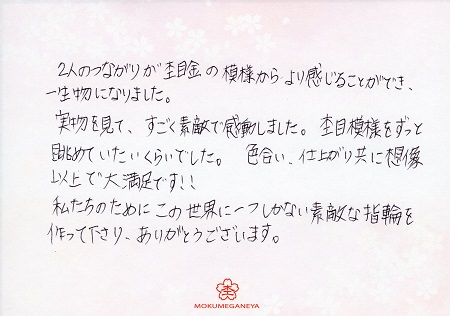 2人のつながりが杢目金の模様からより感じることができ、
一生物になりました。
実物を見て、すごく素敵で感動しました。杢目模様をずっと
眺めていたいくらいでした。色合い、仕上がり共に想像
以上で大満足です!!
私たちのためにこの世界に一つしかない素敵な指輪を
作って下さり、ありがとうございます。
杢
MOKUMEGANEYA